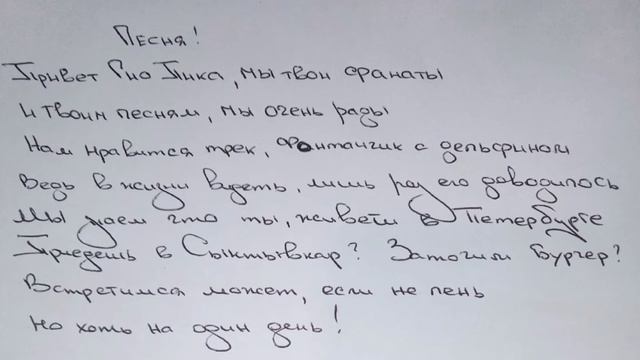 Песня!
Привет Рио Пика, мы твои фанаты
И твоим песням, мы очень рады
Нам нравится трек, Фонтанчик с дельфином
Ведь в жизни видеть, лишь раз его доводилось
Мы знаем что ты, живёшь в Петербурге
Приедешь в Сыктывкар? Заточим бургер?
Встретимся может, если не лень
Но хоть на один день!